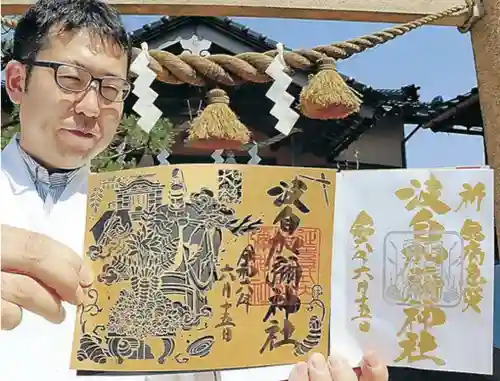 祈 無病息災
波自加彌神社
令和六年六月十五日
波自加彌神社
令和六年
六月十五日